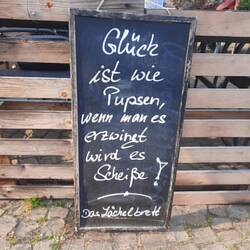 Glück
ist wie
Pupsen,
wenn man es
erzwingt
wird es
Scheiße!
Das Lächelbrett